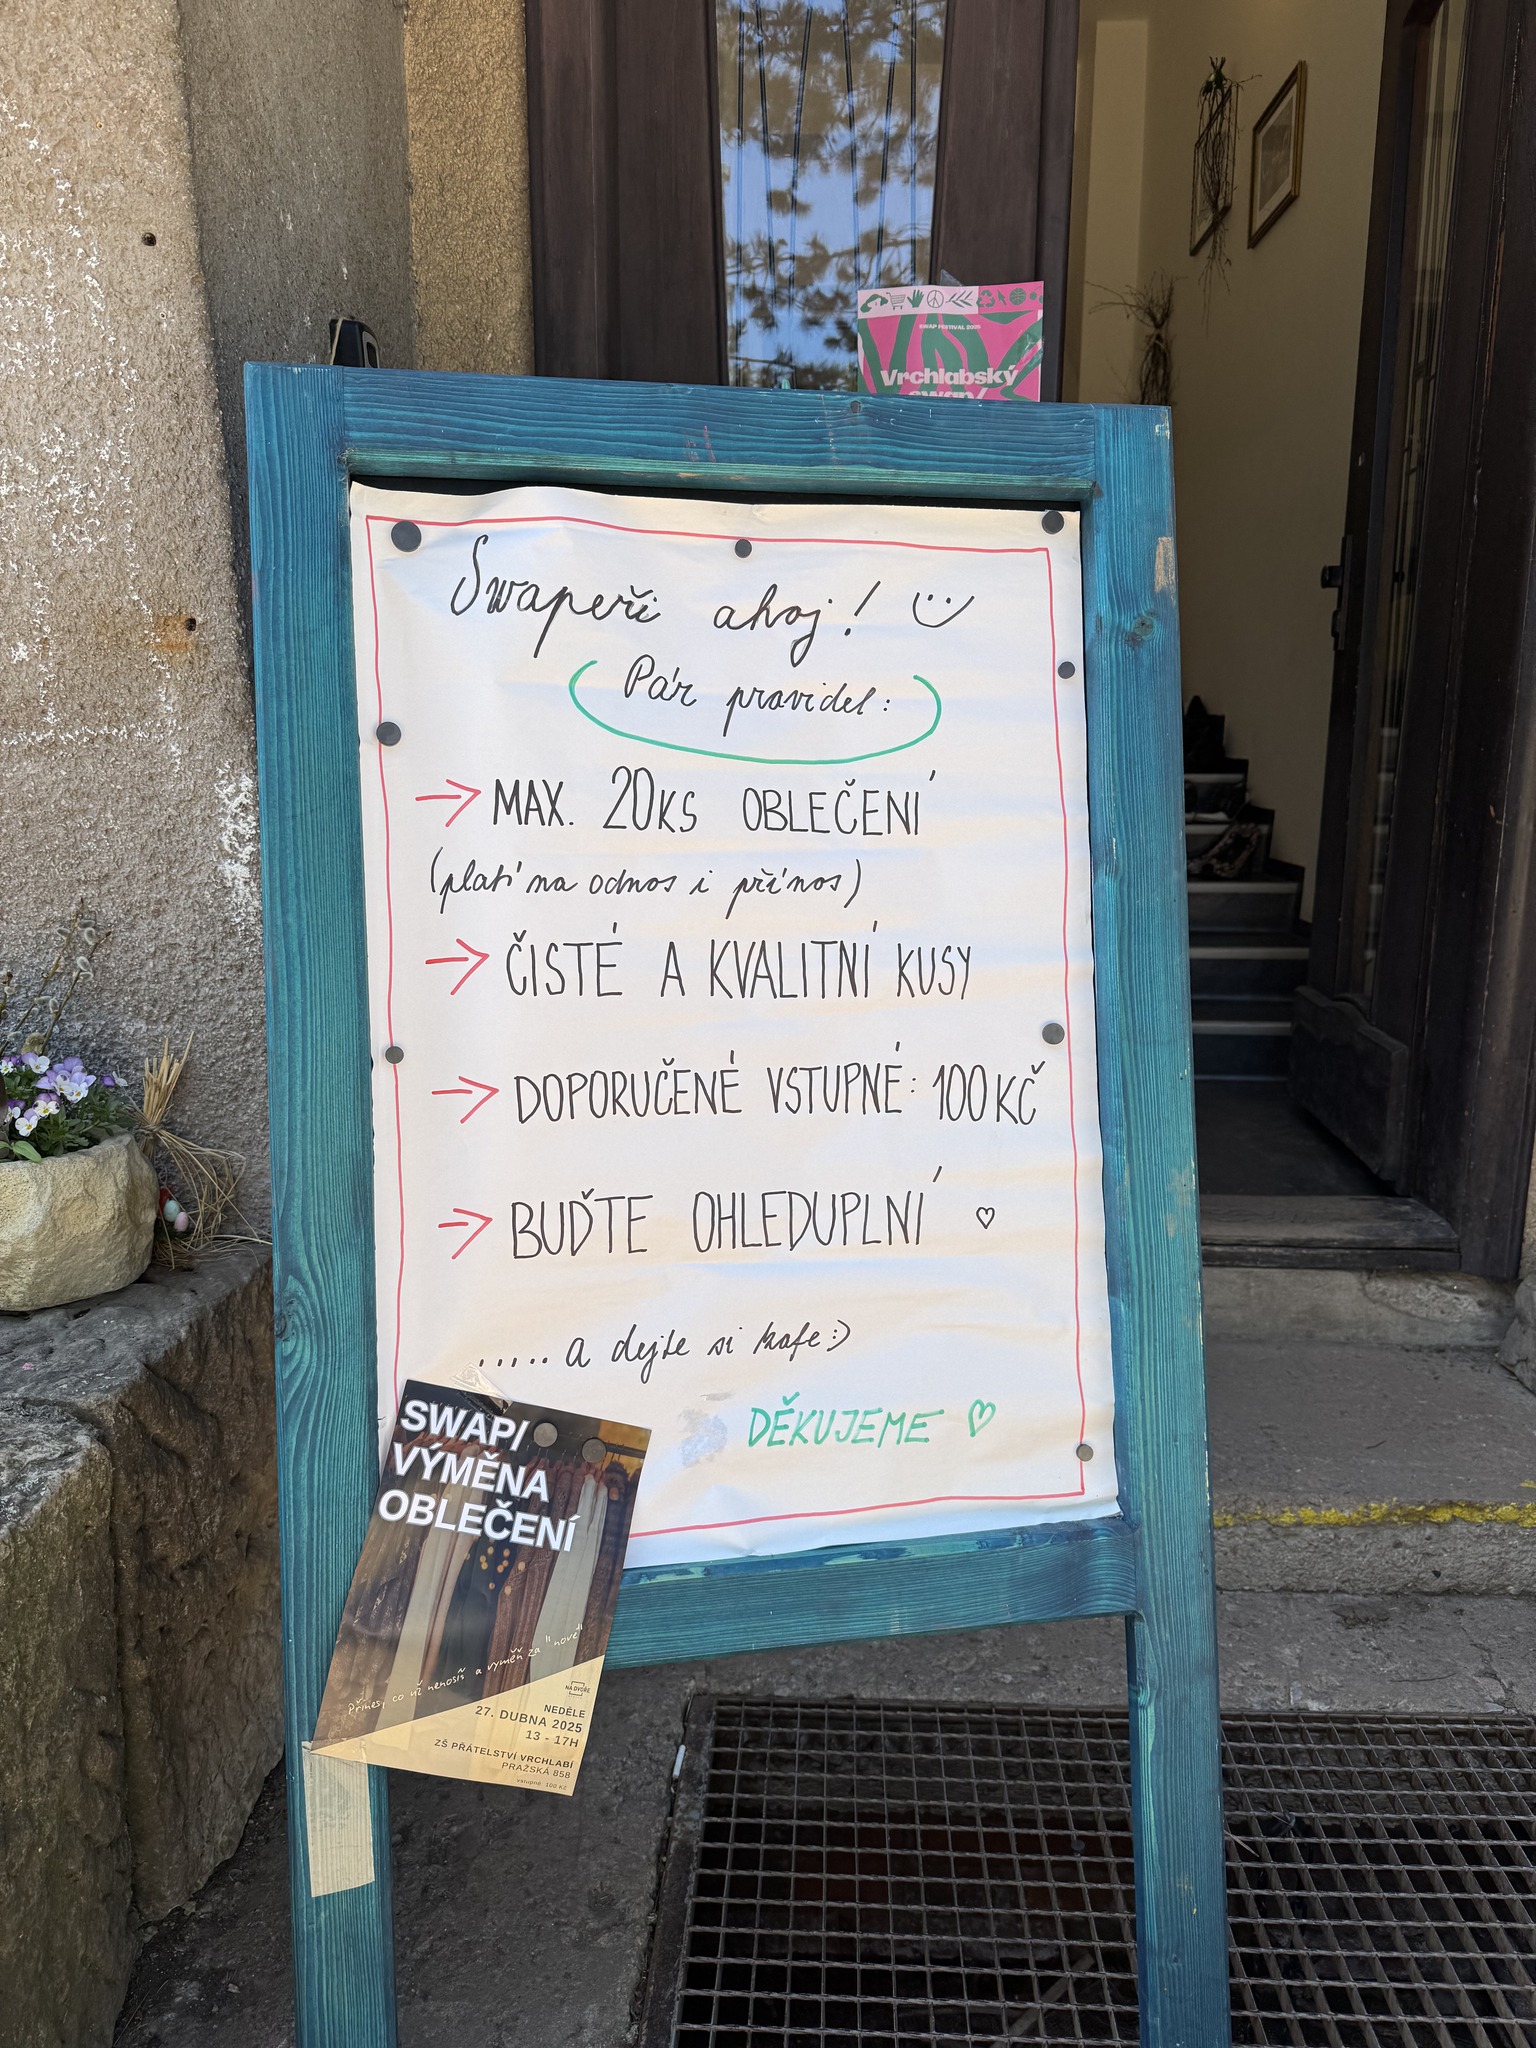 SWAP FESTIVAL 2025
Vrchlabský
swap/
Swapeři ahoj!
Pár pravidel:
MAX. 20KS OBLEČENÍ
(platí na odnos i přínos)
ČISTÉ A KVALITNÍ KUSY
DOPORUČENÉ VSTUPNÉ: 100KČ
BUĎTE OHLEDUPLNÍ
..... a dejte si kafe:)
DĚKUJEME
SWAP/
VÝMĚNA
OBLEČENÍ
Přines, co už nenosíš a vyměň za "nové"
NA DVOŘE
NEDĚLE
27. DUBNA 2025
13 - 17H
ZŠ PŘÁTELSTVÍ VRCHLABÍ
PRAŽSKÁ 858
vstupné: 100 Kč